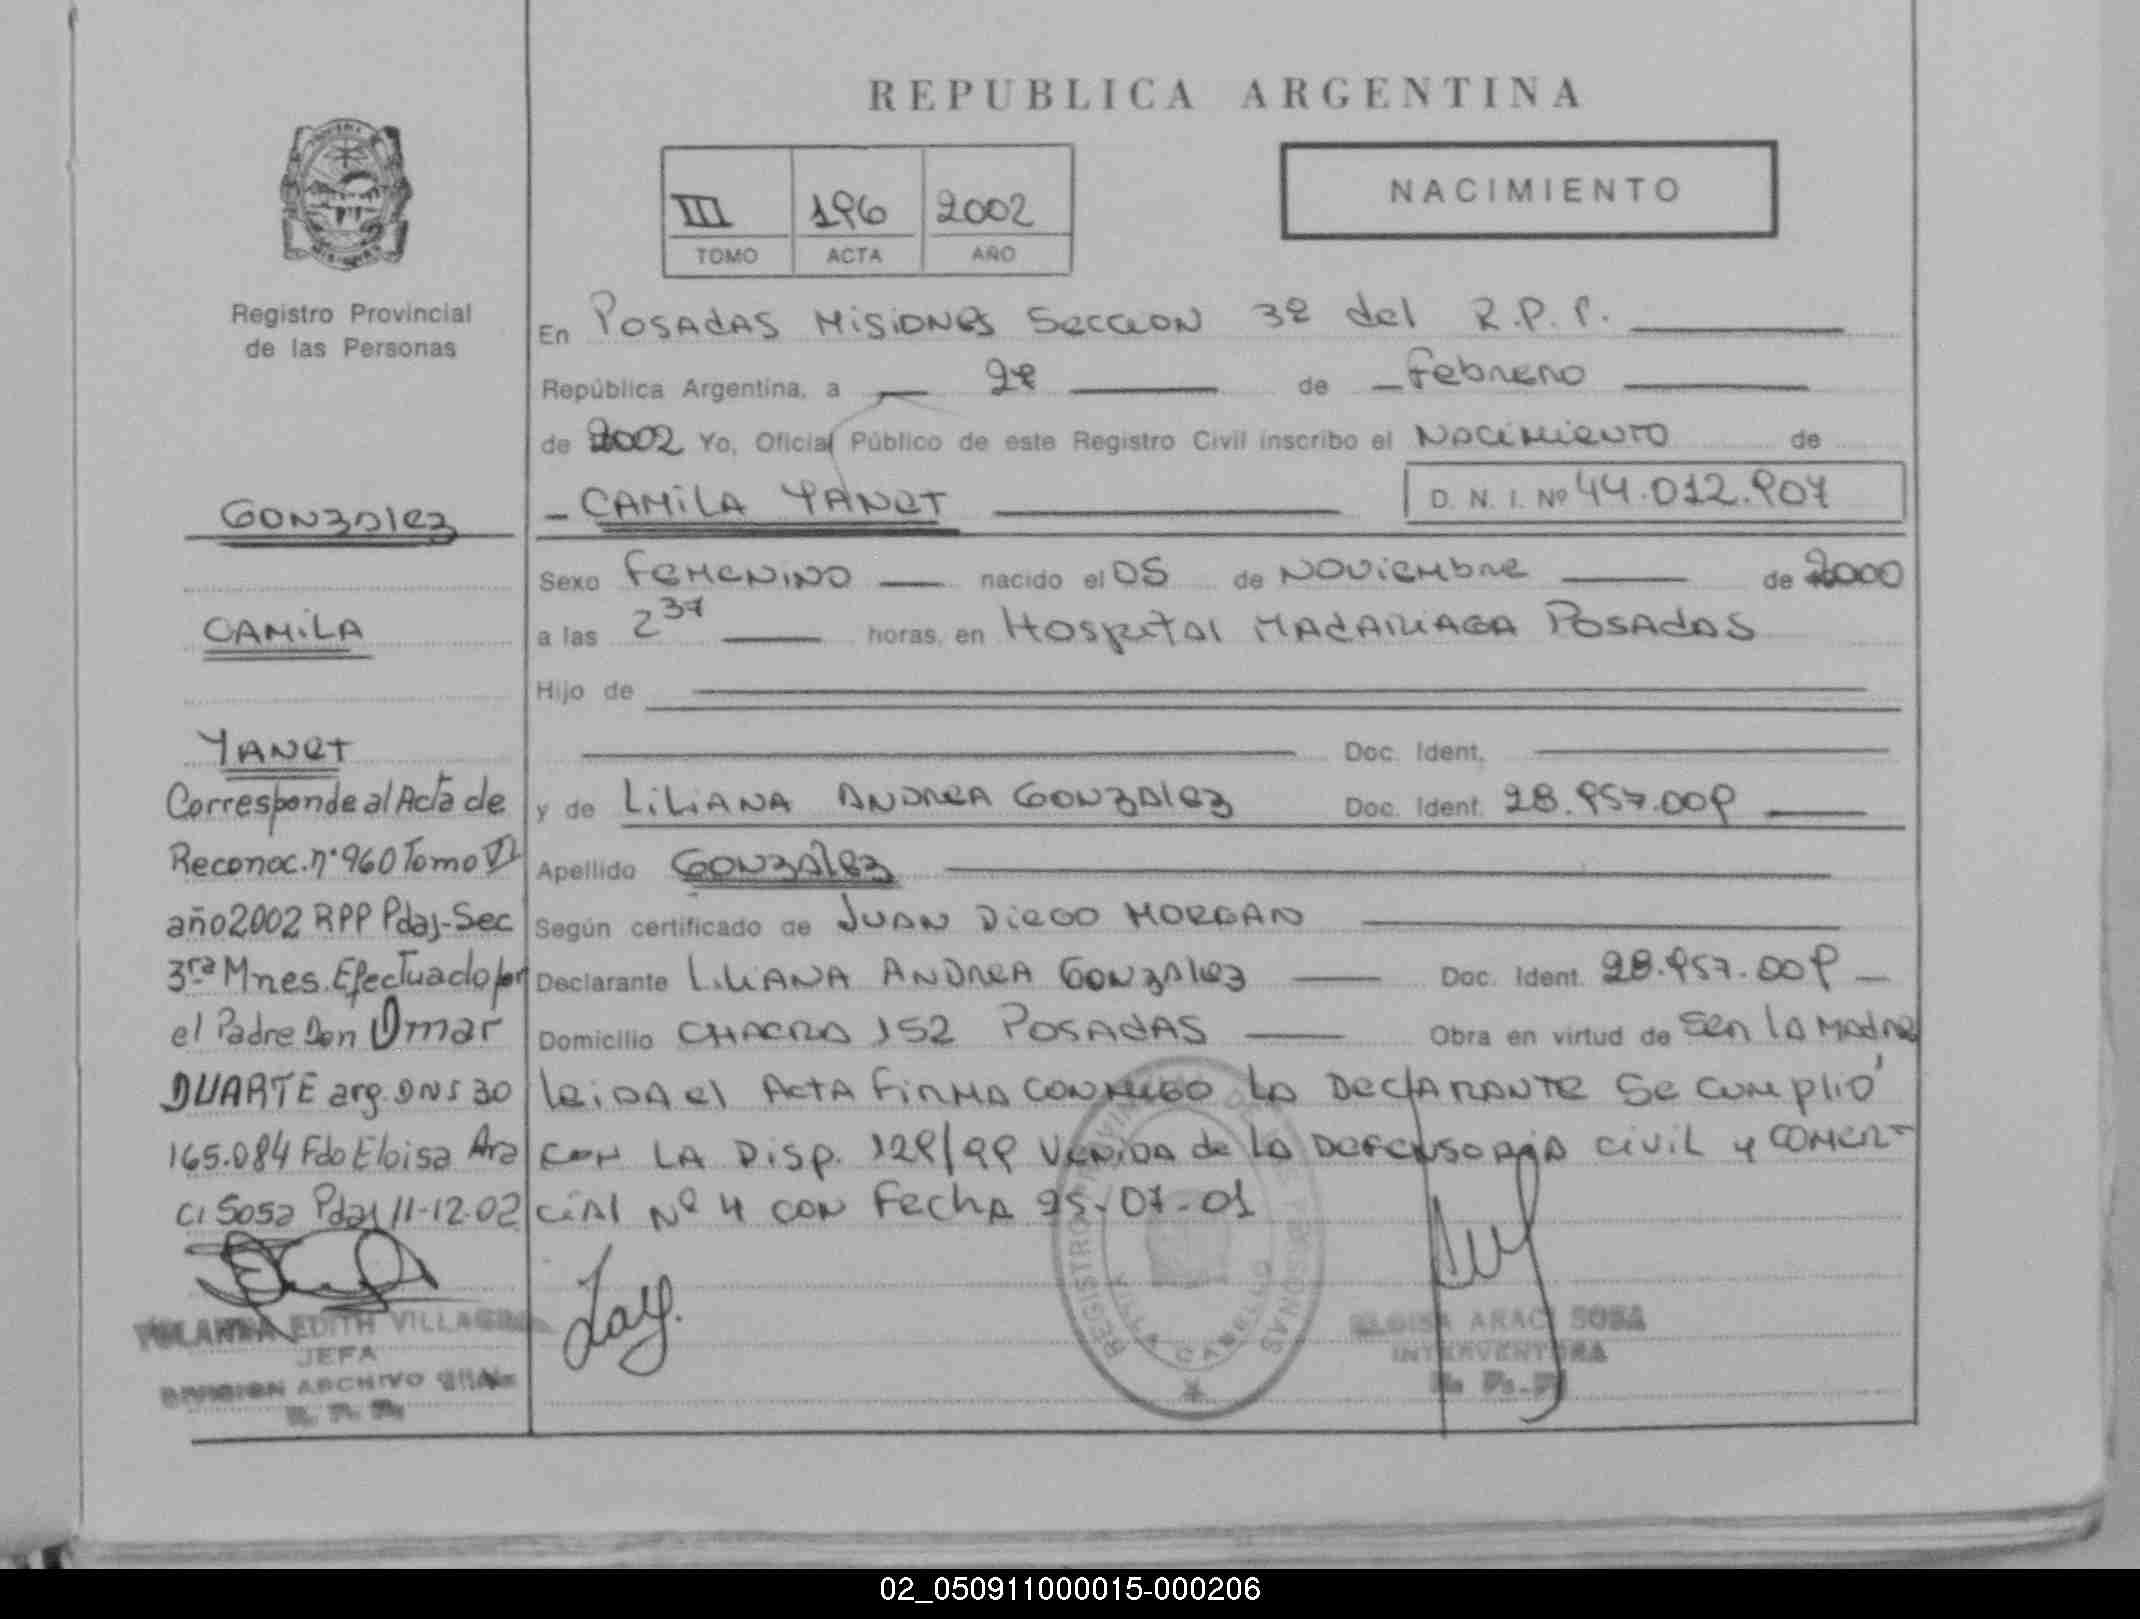 REPUBLICA ARGENTINA
NACIMIENTO
III 196 2002
TOMO ACTA AÑO
Registro Provincial
de las Personas
En POSADAS MISIONES SECCION 3ª del R.P.P.
República Argentina, a de Febrero
de 2002 Yo, Oficial Público de este Registro Civil inscribo el NACIMIENTO de
CAMILA YANET D. N. I. Nº 44.012.907
GONZALEZ
Sexo FEMENINO nacido el 05 de NOVIEMBRE de 2000
CAMILA
a las 2 37 horas, en HOSPITAL MADARIAGA POSADAS
Hijo de
YANET
Doc. Ident.
y de LILIANA ANDREA GONZALEZ Doc. Ident. 28.957.009
Apellido GONZALEZ
Según certificado de JUAN DIEGO MORGAN
Declarante LILIANA ANDREA GONZALEZ Doc. Ident. 28.957.009
Domicilio CHACRA 152 POSADAS Obra en virtud de SER LA MADRE
LEIDA el ACTA FIRMA CONMIGO LA DECLARANTE SE CUMPLIÓ
CON LA DISP. 129/99 VENIDA de LA DEFENSORIA CIVIL y COMER-
CIAL Nº 4 CON FECHA 25-07-01
Corresponde al Acta de
Reconoc. nº 960 Tomo VI
año 2002 RPP Pdas-Sec
3ra Mnes. Efectuado por
el Padre Don Omar
DUARTE arg. DNI 30
165.084 Fdo Eloisa Ara
ci Sosa Pdas 11-12-02
YOLANDA EDITH VILLAGRA
JEFA
DIVISION ARCHIVO GRAL
R. P. P.
REGISTRO PROVINCIAL DE LAS PERSONAS
ELOISA ARACI SOSA
INTERVENTORA
R. P. P.
02_050911000015-000206